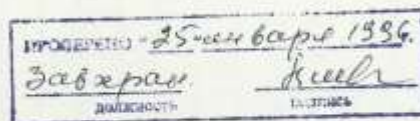 ПРОВЕРЕНО "25" января 1996.
Завхран.
ДОЛЖНОСТЬ ПОДПИСЬ